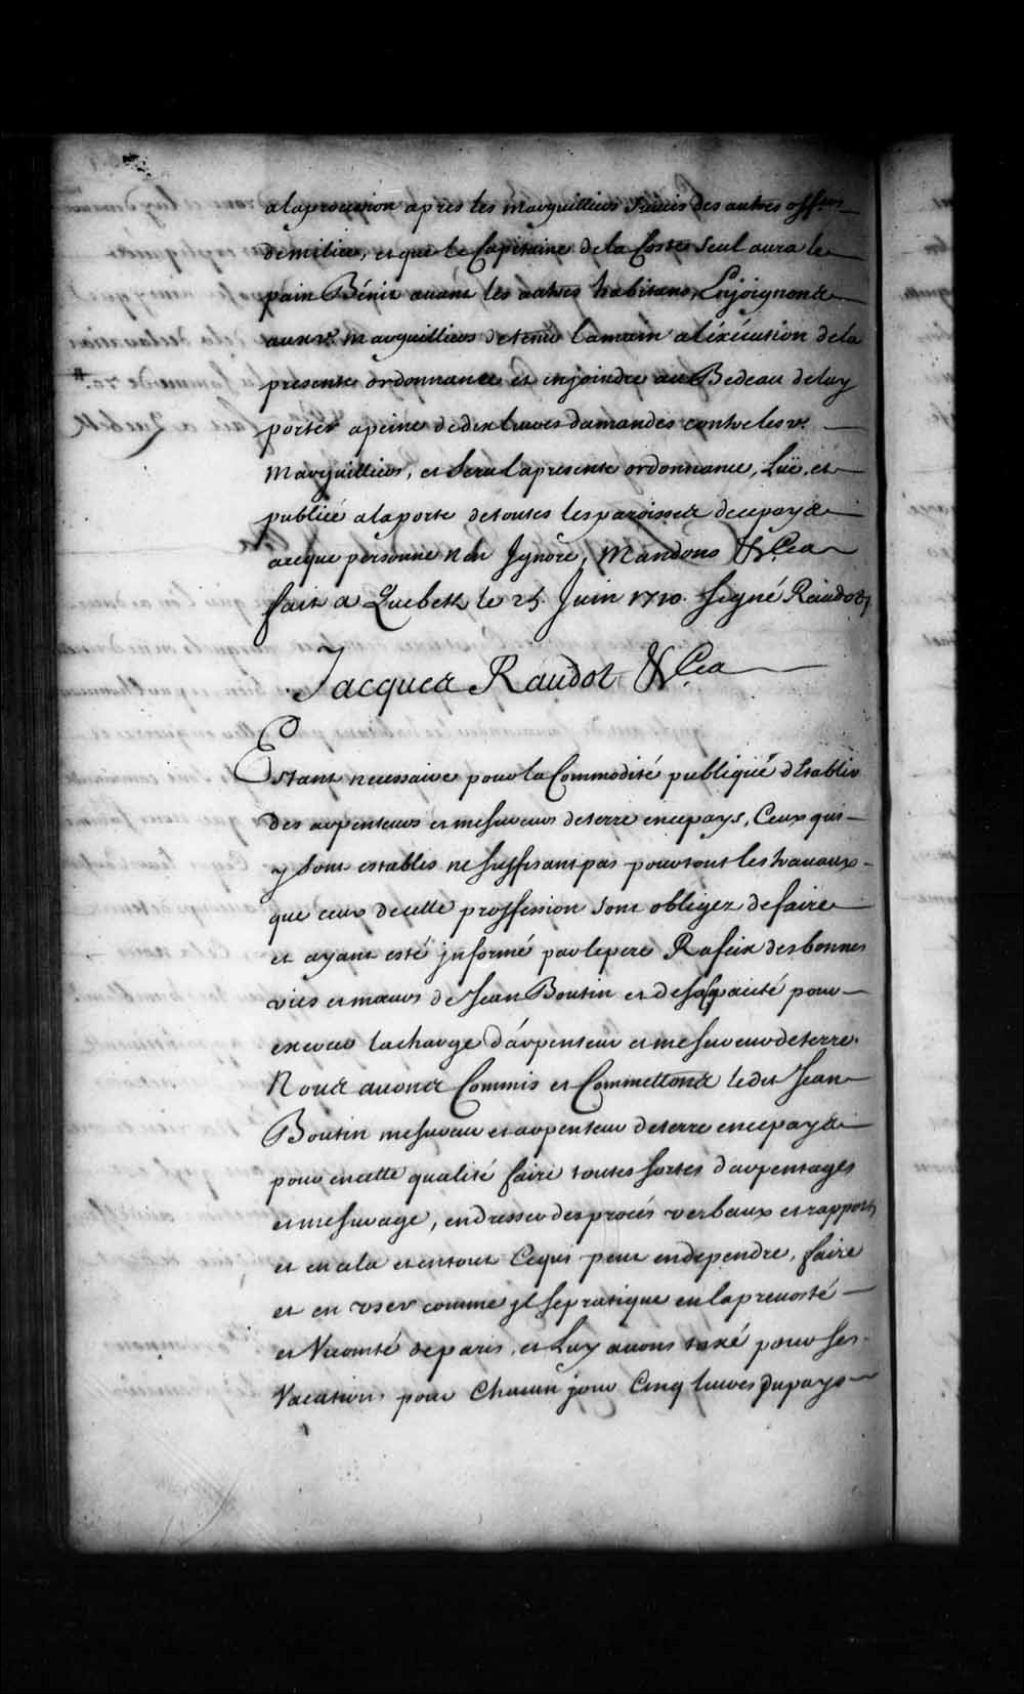 alaprocession apres les marguilliers suivis des autres officiers
demilice, et que le Capitaine dela Coste seul aura le
pain Bénit avant les autres habitans, Enjoignons
auxdts marguilliers detenir lamain aléxécution dela
presente ordonnance et enjoindre au Bedeau deluy
porter apeine dedix livres damandes contre lesdts
Marguilliers, et Sera lapresente ordonnance, Luë, et
publiée alaporte detoutes lesparoisses decepays
aceque personne n'en Jgnore, Mandons &Cea
fait a Quebek le 25 Juin 1710. Signé Raudot
Jacques Raudot &Cea
Estant necessaire pour la Commodité publique d'Establir
des arpenteurs et mesureurs deterre encepays, Ceux qui
y sont establis ne suffisant pas pour tout les travaux
que ceux decette proffession sont obligez defaire
et ayant esté jnformé par lepere Rafeix desbonnes
vies et mœurs de Jean Boutin et desacapacité pour
exercer lacharge d'arpenteur et mesureur deterre.
Nous avons Commis et Commettons ledit Jean
Boutin mesureur et arpenteur deterre encepays
pour encette qualité faire toutes sortes d'arpentages
et mesurage, en dresser des procés verbaux et rapports
et en cela et entout Cequi peut endependre, faire
et en user comme jl sepratique en laprevosté
et Vicomté deparis, et Luy avons taxé pour ses
Vacations pour Chacun jour Cinq livres dupays